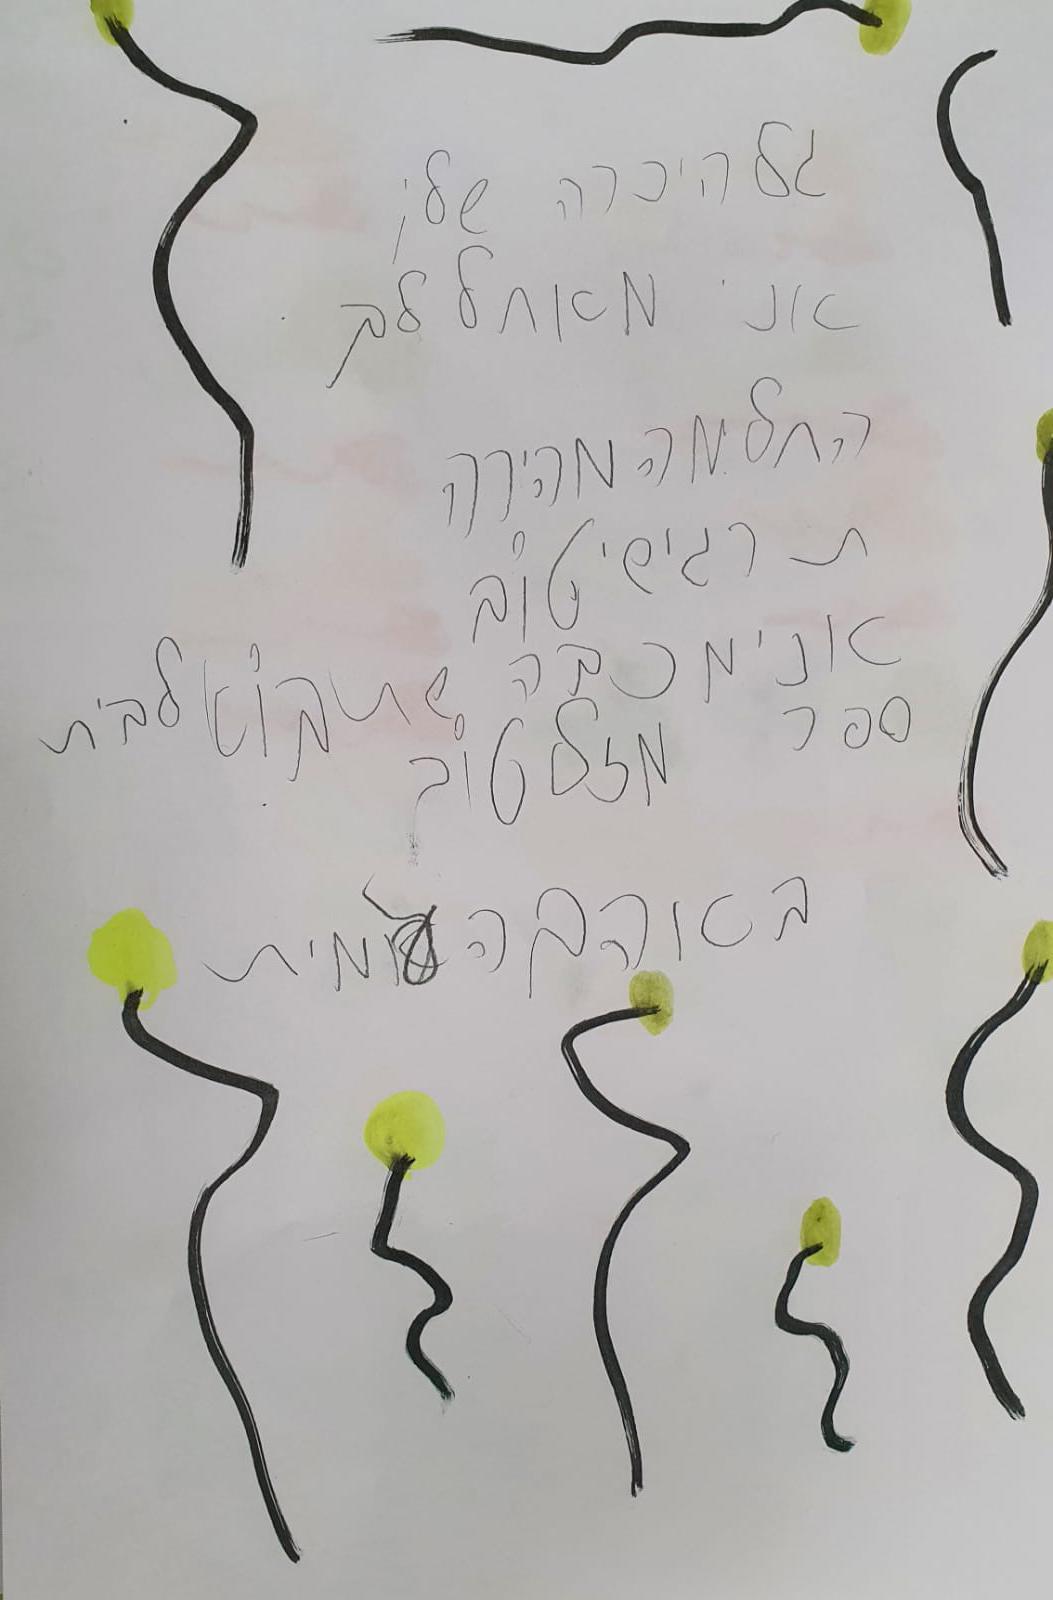 גל היכרה שלי
אני מאחל לך
החלמה מהירה
תרגישי טוב
אני מכבה שתבוא לבית
ספר מזל טוב
באוהבה עמית